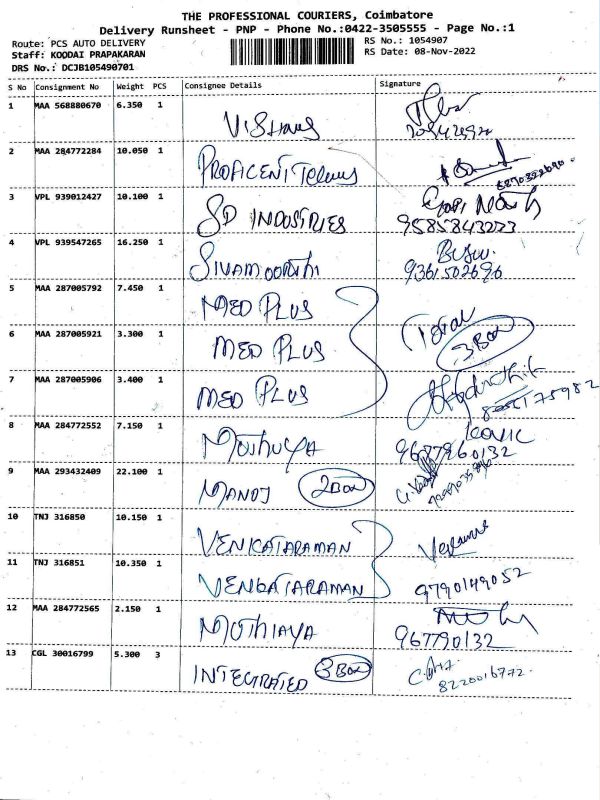 THE PROFESSIONAL COURIERS, Coimbatore
Delivery Runsheet - PNP - Phone No.:0422-3505555 - Page No.:1
Route: PCS AUTO DELIVERY
RS No.: 1054907
Staff: KOODAI PRAPAKARAN
RS Date: 08-Nov-2022
DRS No.: DCJB105490701
S No Consignment No Weight PCS Consignee Details Signature
1 MAA 568880670 6.350 1
2 MAA 284772284 10.050 1 PROFICENT
3 VPL 939012427 10.100 1 SD INDUSTRIES
9585843223
4 VPL 939547265 16.250 1 SIVAMOORTHI
9361502696
5 MAA 287005792 7.450 1 MED PLUS
6 MAA 287005921 3.300 1 MED PLUS Total 3 Box
7 MAA 287005906 3.400 1 MED PLUS
8 MAA 284772552 7.150 1
9 MAA 293432409 22.100 1 MANOJ 2 Box
10 TNJ 316850 10.150 1 VENKATARAMAN
11 TNJ 316851 10.350 1 VENGATARAMAN
9790149052
12 MAA 284772565 2.150 1 MUTHIAYA
967790132
13 CGL 30016799 5.300 3 INTEGRATED 3 Box
8220016772